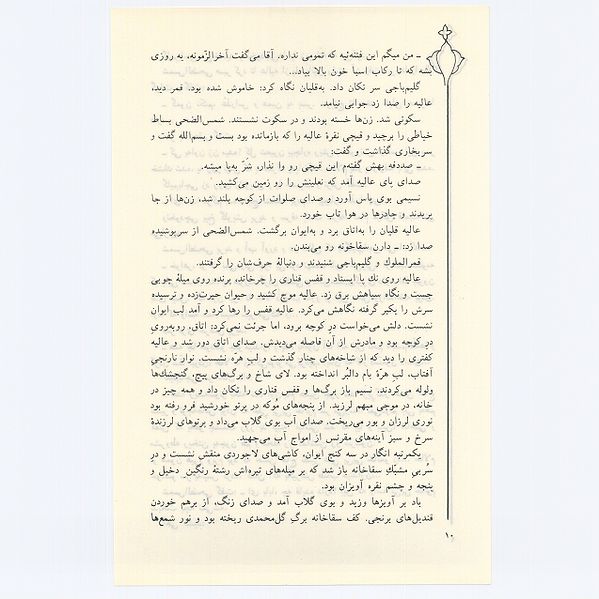 ـ من میگم این فتنه‌ئیه که تمومی نداره. آقا می‌گفت آخرالزّمونه، یه روزی
بشه که تا رکاب اسبا خون بالا بیاد...
گلیم‌باجی سر تکان داد. به‌قلیان نگاه کرد: خاموش شده بود. قمر دید،
عالیه را صدا زد جوابی نیامد.
سکوتی شد. زن‌ها خسته بودند و در سکوت نشستند. شمس‌الضحی بساط
خیاطی را برچید و قیچی نقرهٔ عالیه را که بازمانده بود بست و بسم‌الله گفت و
سربخاری گذاشت و گفت:
ـ صددفه بهش گفته‌م این قیچی رو وا نذار، شرّ به‌پا میشه.
صدای پای عالیه آمد که نعلینش را رو زمین می‌کشید.
نسیمی بوی یاس آورد و صدای صلوات از کوچه بلند شد، زن‌ها از جا
پریدند و چادرها در هوا تاب خورد.
عالیه قلیان را به‌اتاق برد و به‌ایوان برگشت. شمس‌الضحی از سرپوشیده
صدا زد: ـ دارن سقاخونه رو می‌بندن.
قمرالملوك و گلیم‌باجی شنیدند و دنبالهٔ حرف‌شان را گرفتند.
عالیه روی نك پا ایستاد و قفس قناری را چرخاند، پرنده روی میلهٔ چوبی
جست و نگاه سیاهش برق زد. عالیه موچ کشید و حیوان حیرت‌زده و ترسیده
سرش را یکبر گرفته نگاهش می‌کرد. عالیه قفس را رها کرد و آمد لب ایوان
نشست. دلش می‌خواست درِ کوچه برود، اما جرئت نمی‌کرد: اتاق، روبه‌روی
درِ کوچه بود و مادرش از آن فاصله می‌دیدش. صدای اتاق دور شد و عالیه
کفتری را دید که از شاخه‌های چنار گذشت و لبِ هرّه نشست. نوار نارنجیِ
آفتاب، لبِ هرّهٔ بام دالبُر انداخته بود. لای شاخ و برگ‌های پیچ، گنجشك‌ها
ولوله می‌کردند. نسیم باز برگ‌ها و قفس قناری را تکان داد و همه چیز در
خانه، در موجی مبهم لرزید. از پنجه‌های مُوکه در پرتو خورشید فرو رفته بود
نوری لرزان و بور می‌ریخت. صدای آب بوی گلاب می‌داد و پرتوهای لرزندهٔ
سرخ و سبز آینه‌های مقرنس از امواج آب می‌جهید.
یکمرتبه انگار در سه کنج ایوان، کاشی‌های لاجوردی منقش نشست و درِ
سُربیِ مشبّكِ سقاخانه باز شد که بر میله‌های تیره‌اش رشتهٔ رنگینِ دخیل و
پنجه و چشم نقره آویزان بود.
باد بر آویزها وزید و بوی گلاب آمد و صدای زنگ، از برهم خوردن
قندیل‌های برنجی. کف سقاخانه برگِ گل‌محمدی ریخته بود و نور شمع‌ها
۱۰